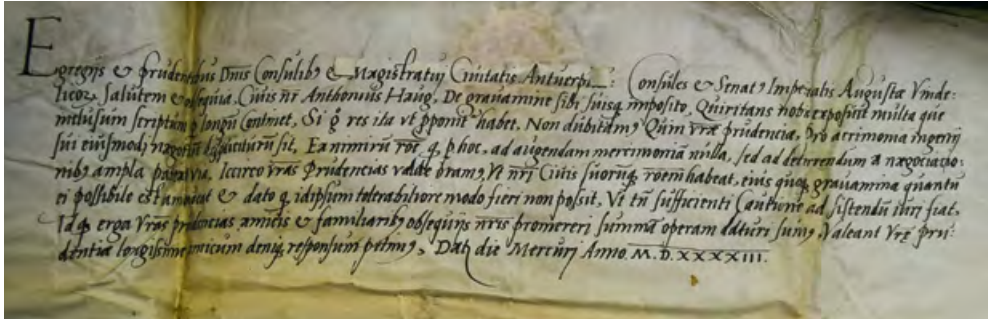 Egregijs & prudentibus Dn̄is Consulib; & Magistratuj Ciuitatis Antuerpi___: Consules & Senat9 Imperialis Augustæ Vinde:
licorꝝ Salutem & obsequia. Ciuis nr̄ Anthonius Haug, De grauamine sibi suisq; imposito, Quiritans nobis exposuit multa que
inclusum scriptum longū Continet, Si q̄ res ita vt p̱ponit habet, Non dubitam9 Quin vr̄æ prudenciæ, pro acrimonia ingenij
sui eiusmodj negotiū sit, Ea nimirū roē, q̨ p̱ hoc, ad augendam mercimoniā nulla, sed ad deterrendum a nægociacio:
nib; ampla via, Iccirco vr̄as Prudencias valde oram9, Vt nr̄j Ciuis suorūq; roēm habeat, eius quoq; grauamina quantū
ei possibile est amoueat & dato q̨ idipsum tolerabiliore modo fieri non possit, Vt tn̄ sufficienti Cautione ad sistendū iuri fiat,
Idq; erga Vr̄as prudencias amicis & familiarib; obsequijs nr̄is promereri summā operam daturi sum9, Valeant Vr̄ę pru:
dentiæ amicum deniq; responsum petim9, Datꝫ die Mercurij Anno. M.D.XXXXIII.